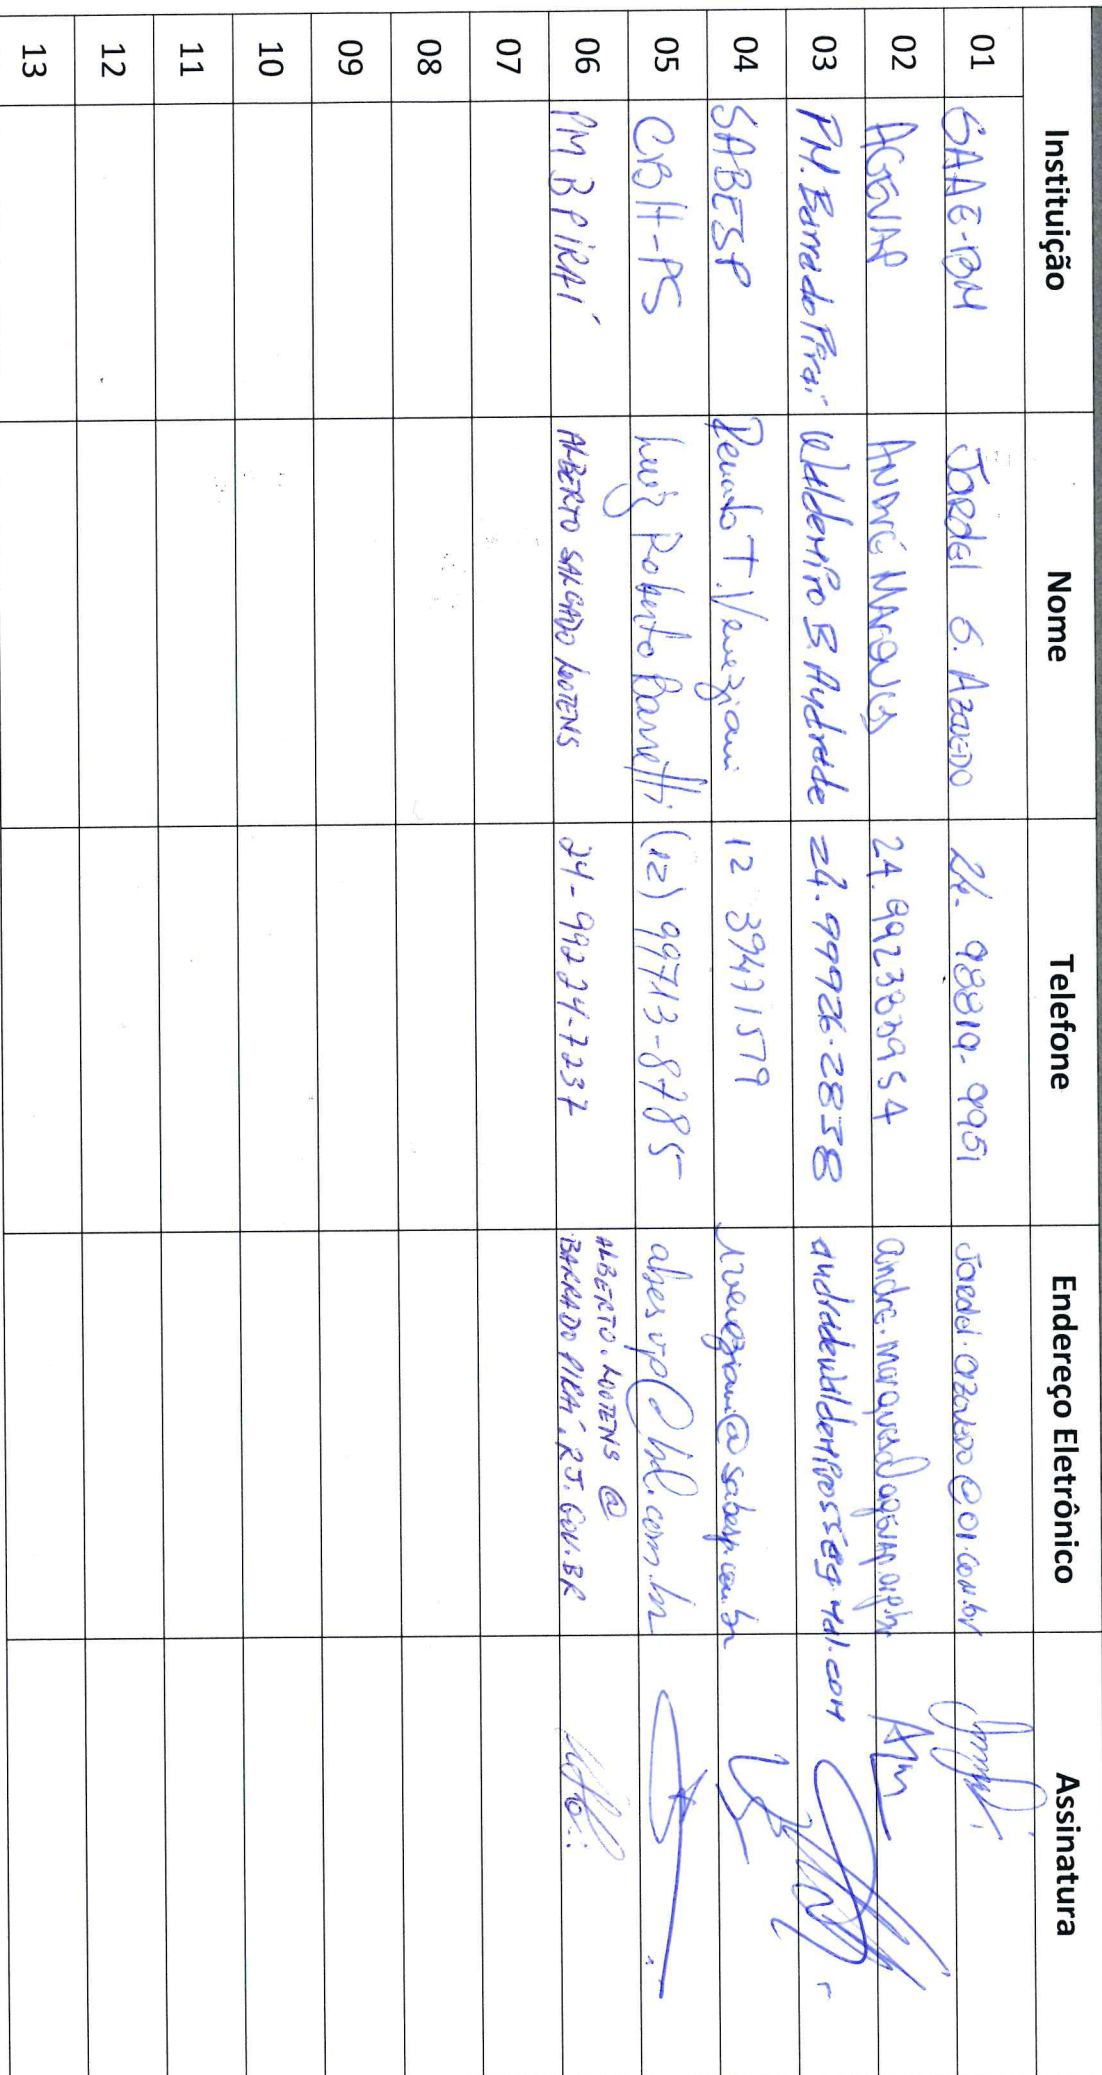 Instituição Nome Telefone Endereço Eletrônico Assinatura
01 SAAE-BM Jardel S. Azevedo 24. 98819-9951 jardel.azevedo@oi.com.br
02 AGEVAP André Marques 24.992383954 andre.marques@agevap.org.br
03 PM. Barra do Piraí Waldemiro B. Andrade 24.99926-2838
04 SABESP Renato T. Veneziani 12 39471579 rveneziani@sabesp.com.br
05 CBH-PS Luiz Roberto Barretti (12) 99713-8785 abesvp@bol.com.br
06 PM B PIRAÍ ALBERTO SALGADO LOOTENS 24-99224-7237 ALBERTO.LOOTENS @
BARRADOPIRAÍ.RJ.GOV.BR
07
08
09
10
11
12
13